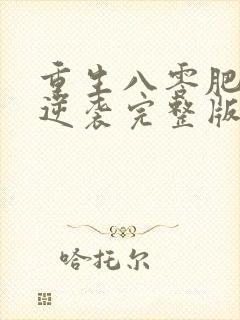 重生八零肥
逆袭完整版
哈托尔